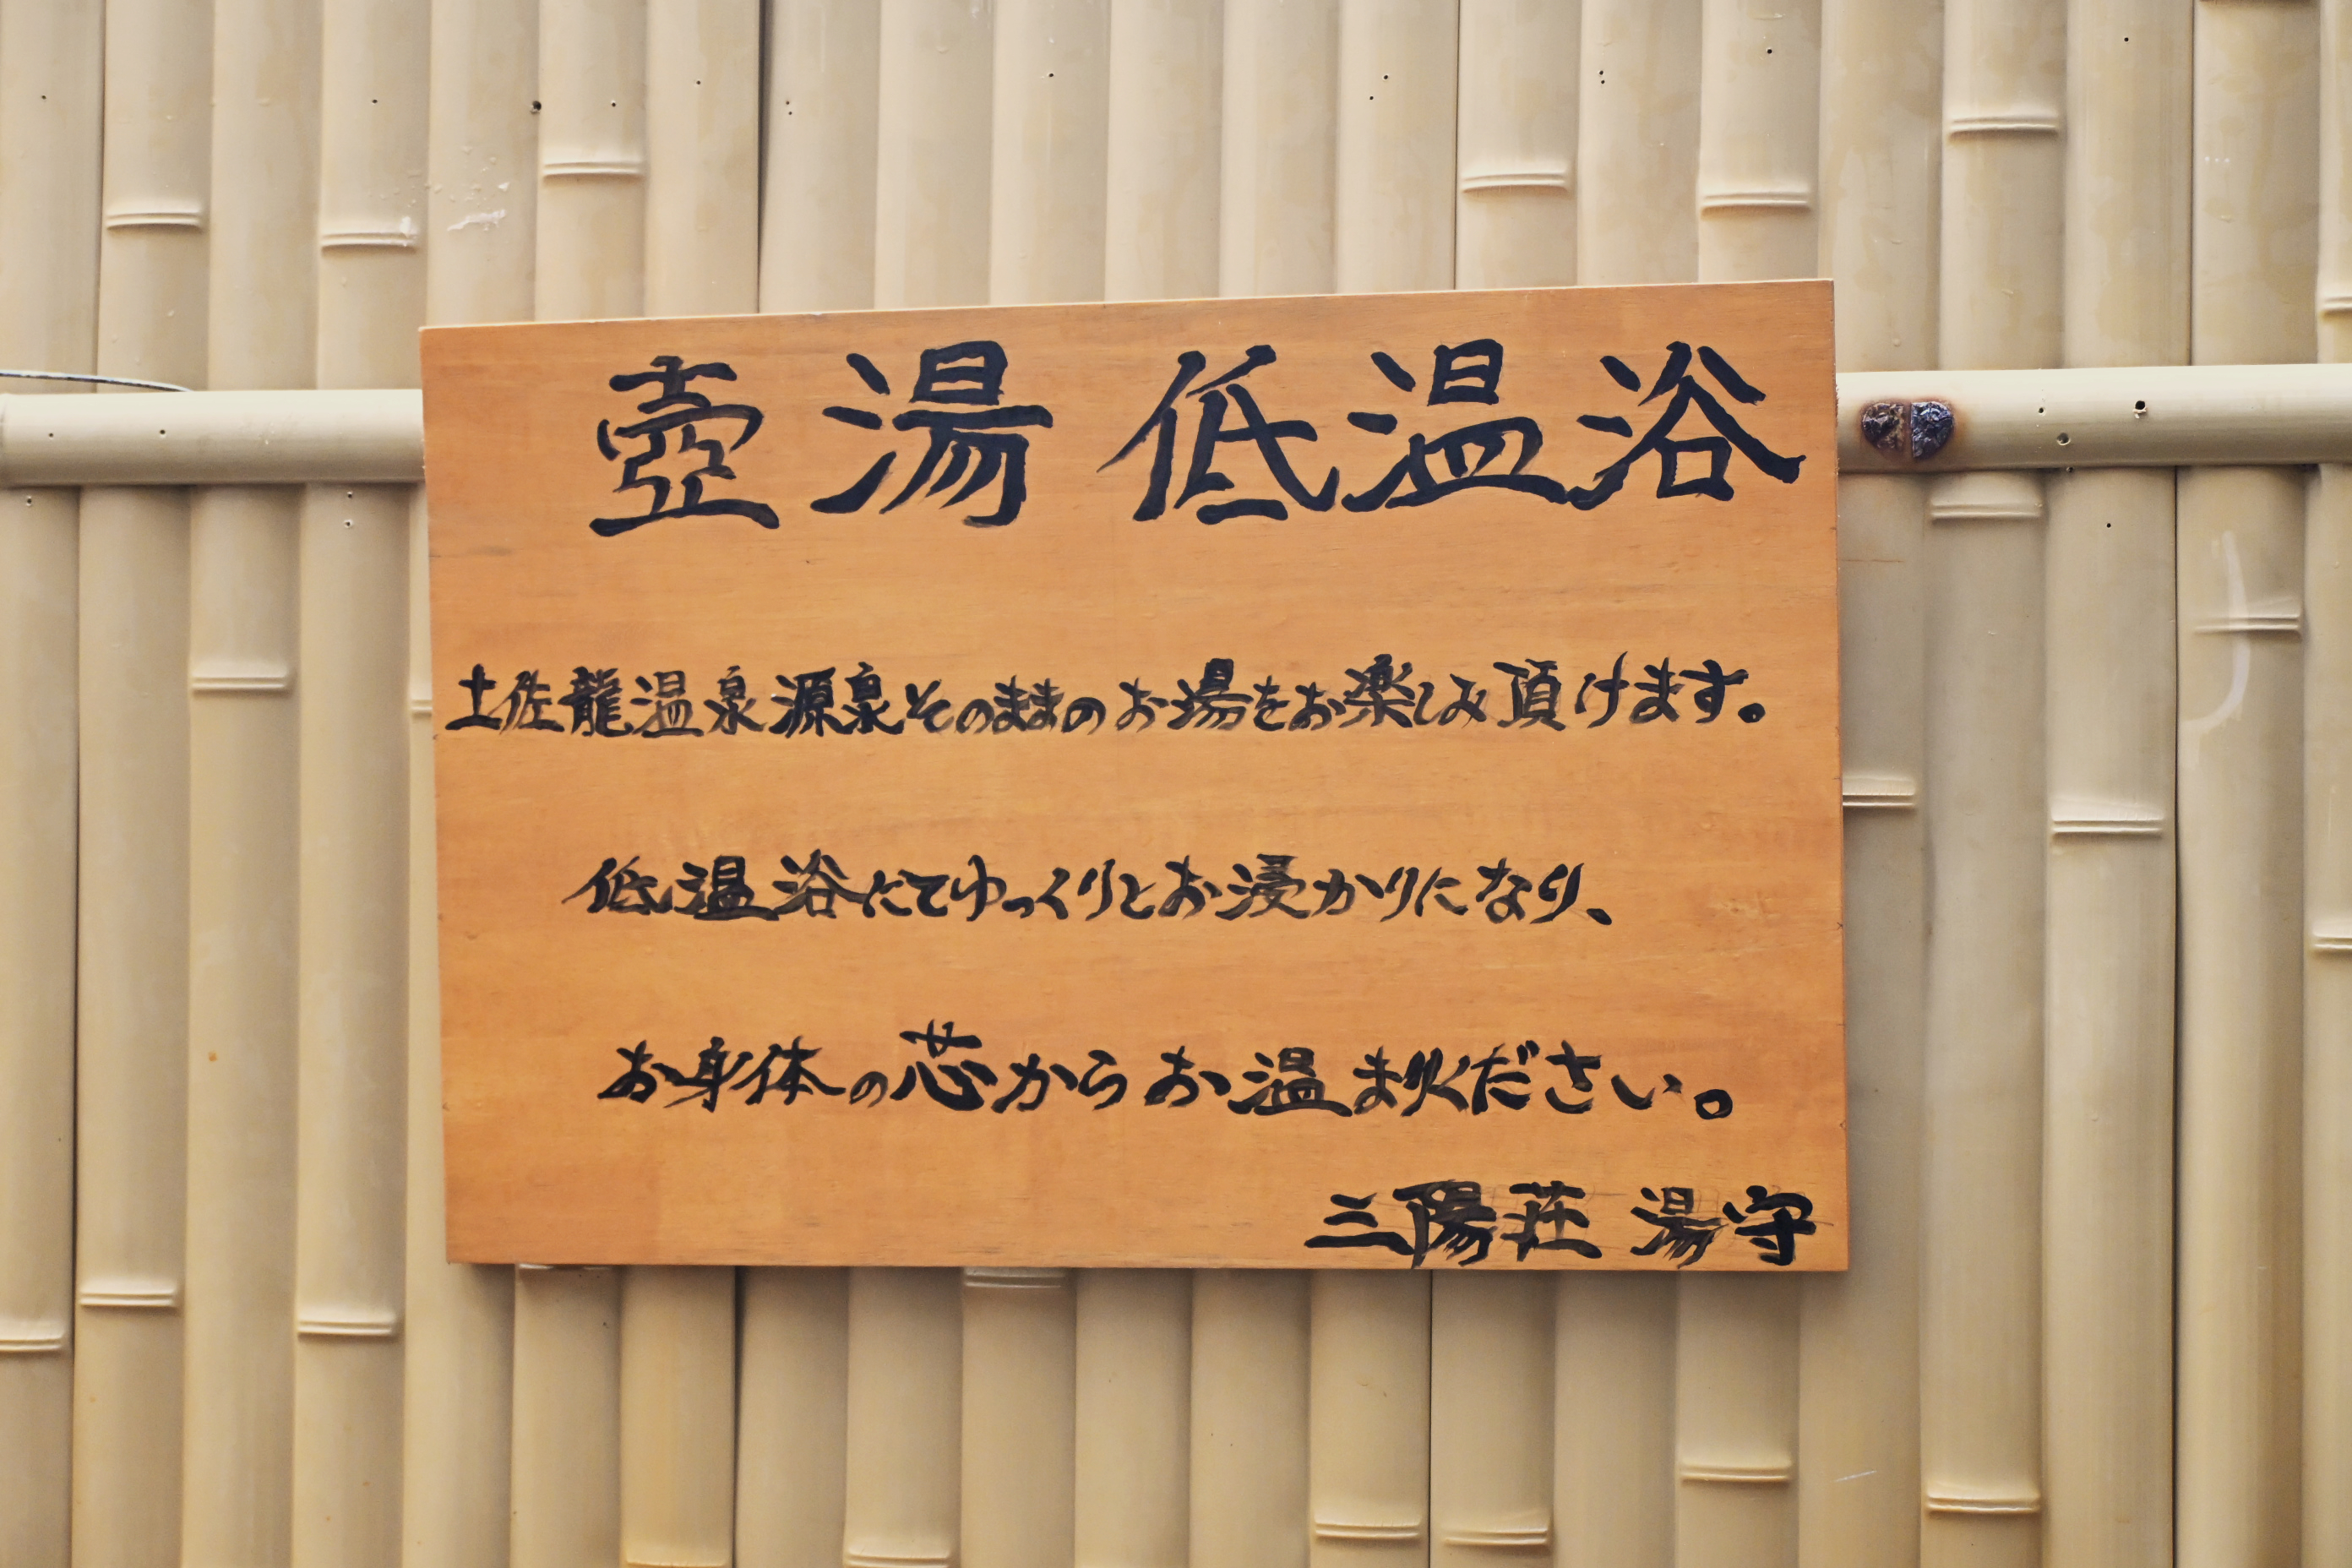 壺湯 低温浴
土佐龍温泉源泉そのままのお湯をお楽しみ頂けます。
低温浴にてゆっくりとお浸かりになり、
お身体の芯からお温まりください。
三陽荘 湯守